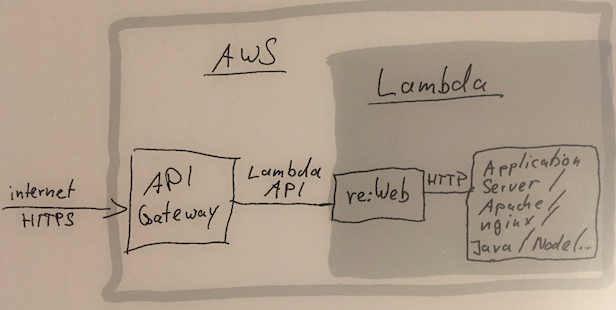 AWS
Lambda
internet
HTTPS
API
Gateway
Lambda
API
re:Web
HTTP
Application
Server /
Apache /
nginx /
Java / Node/...